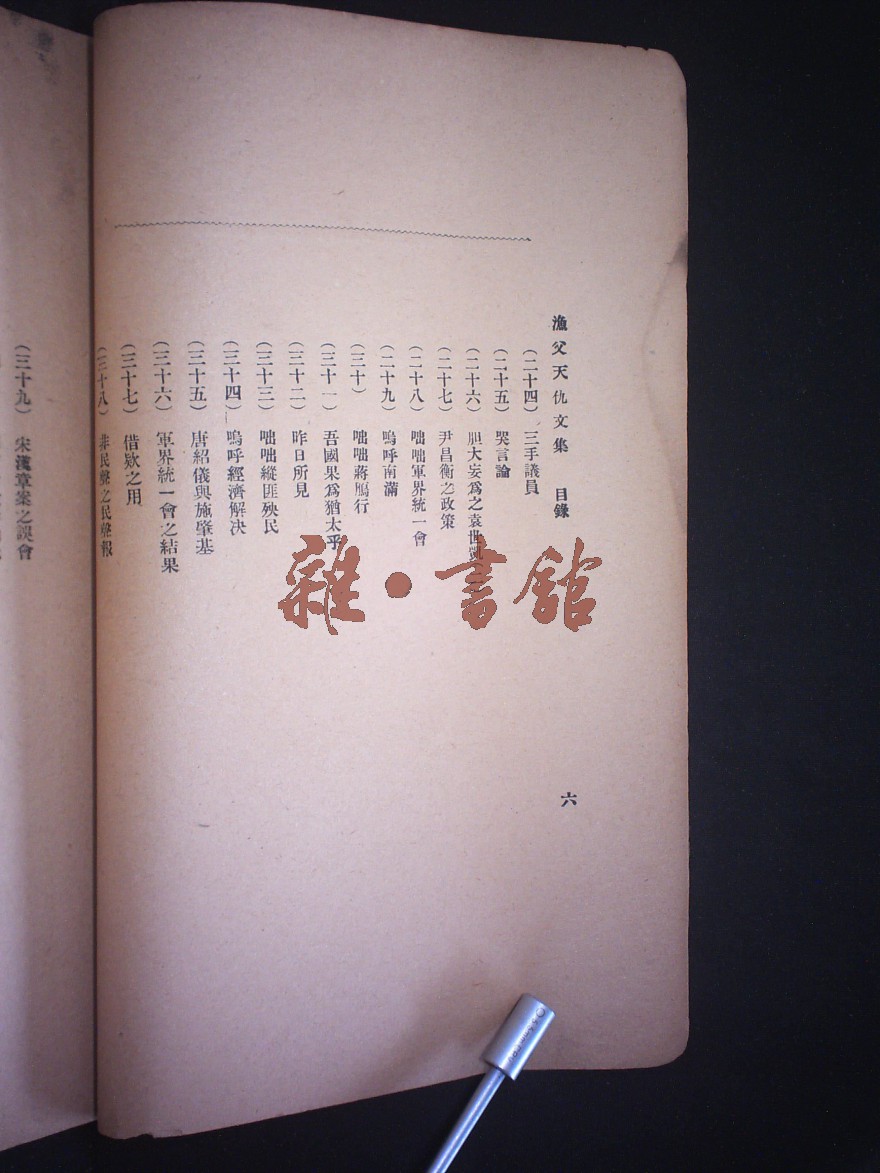 漁父天仇文集　目錄
（二十四）三手議員
（二十五）哭言論
（二十六）胆大妄爲之袁世凱
（二十七）尹昌衡之政策
（二十八）咄咄軍界統一會
（二十九）嗚呼南滿
（三十）咄咄蔣鴈行
（三十一）吾國果爲猶太乎
（三十二）昨日所見
（三十三）咄咄縱匪殃民
（三十四）嗚呼經濟解决
（三十五）唐紹儀與施肇基
（三十六）軍界統一會之結果
（三十七）借欵之用
（三十八）非民聲之民聲報
六
（三十九）宋漢章案之誤會
雜·書館